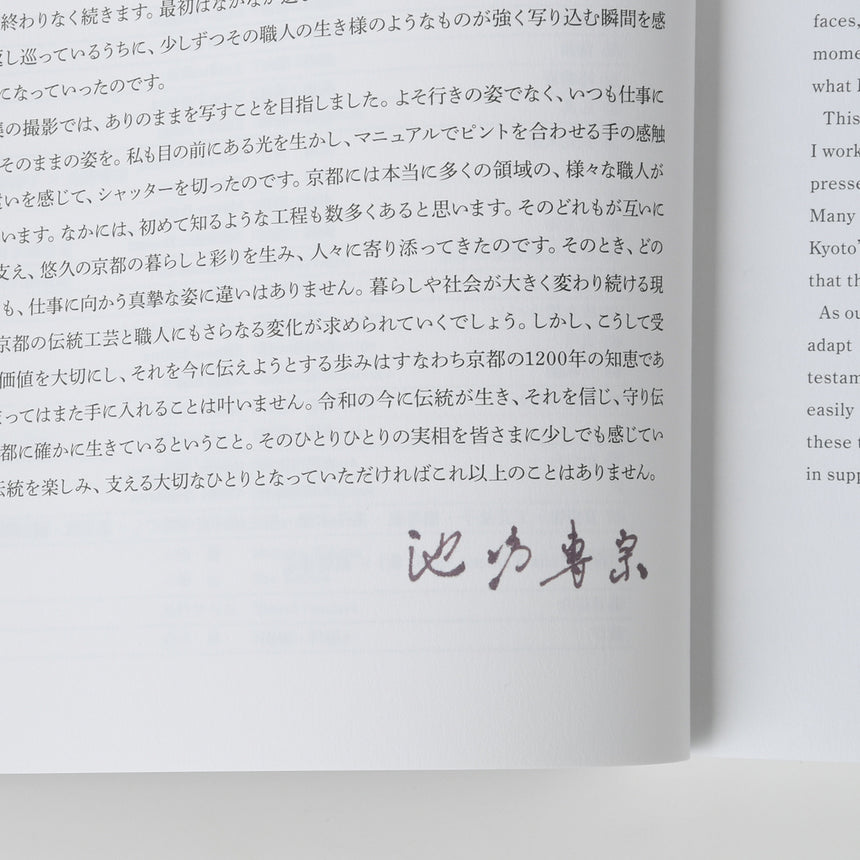 終わりなく続きます。最初はなかなか
し巡っているうちに、少しずつその職人の生き様のようなものが強く写り込む瞬間を感
になっていったのです。
の撮影では、ありのままを写すことを目指しました。よそ行きの姿でなく、いつも仕事に
そのままの姿を。私も目の前にある光を生かし、マニュアルでピントを合わせる手の感触
いを感じて、シャッターを切ったのです。京都には本当に多くの領域の、様々な職人が
います。なかには、初めて知るような工程も数多くあると思います。そのどれもが互いに
支え、悠久の京都の暮らしと彩りを生み、人々に寄り添ってきたのです。そのとき、どの
も、仕事に向かう真摯な姿に違いはありません。暮らしや社会が大きく変わり続ける現
京都の伝統工芸と職人にもさらなる変化が求められていくでしょう。しかし、こうして受
価値を大切にし、それを今に伝えようとする歩みはすなわち京都の1200年の知恵であ
ってはまた手に入れることは叶いません。令和の今に伝統が生き、それを信じ、守り伝
都に確かに生きているということ。そのひとりひとりの実相を皆さまに少しでも感じてい
伝統を楽しみ、支える大切なひとりとなっていただければこれ以上のことはありません。
池 専宗
faces,
mome
what
This
I work
presse
Many
Kyoto'
that th
As ou
adapt
testam
easily
these
in supp